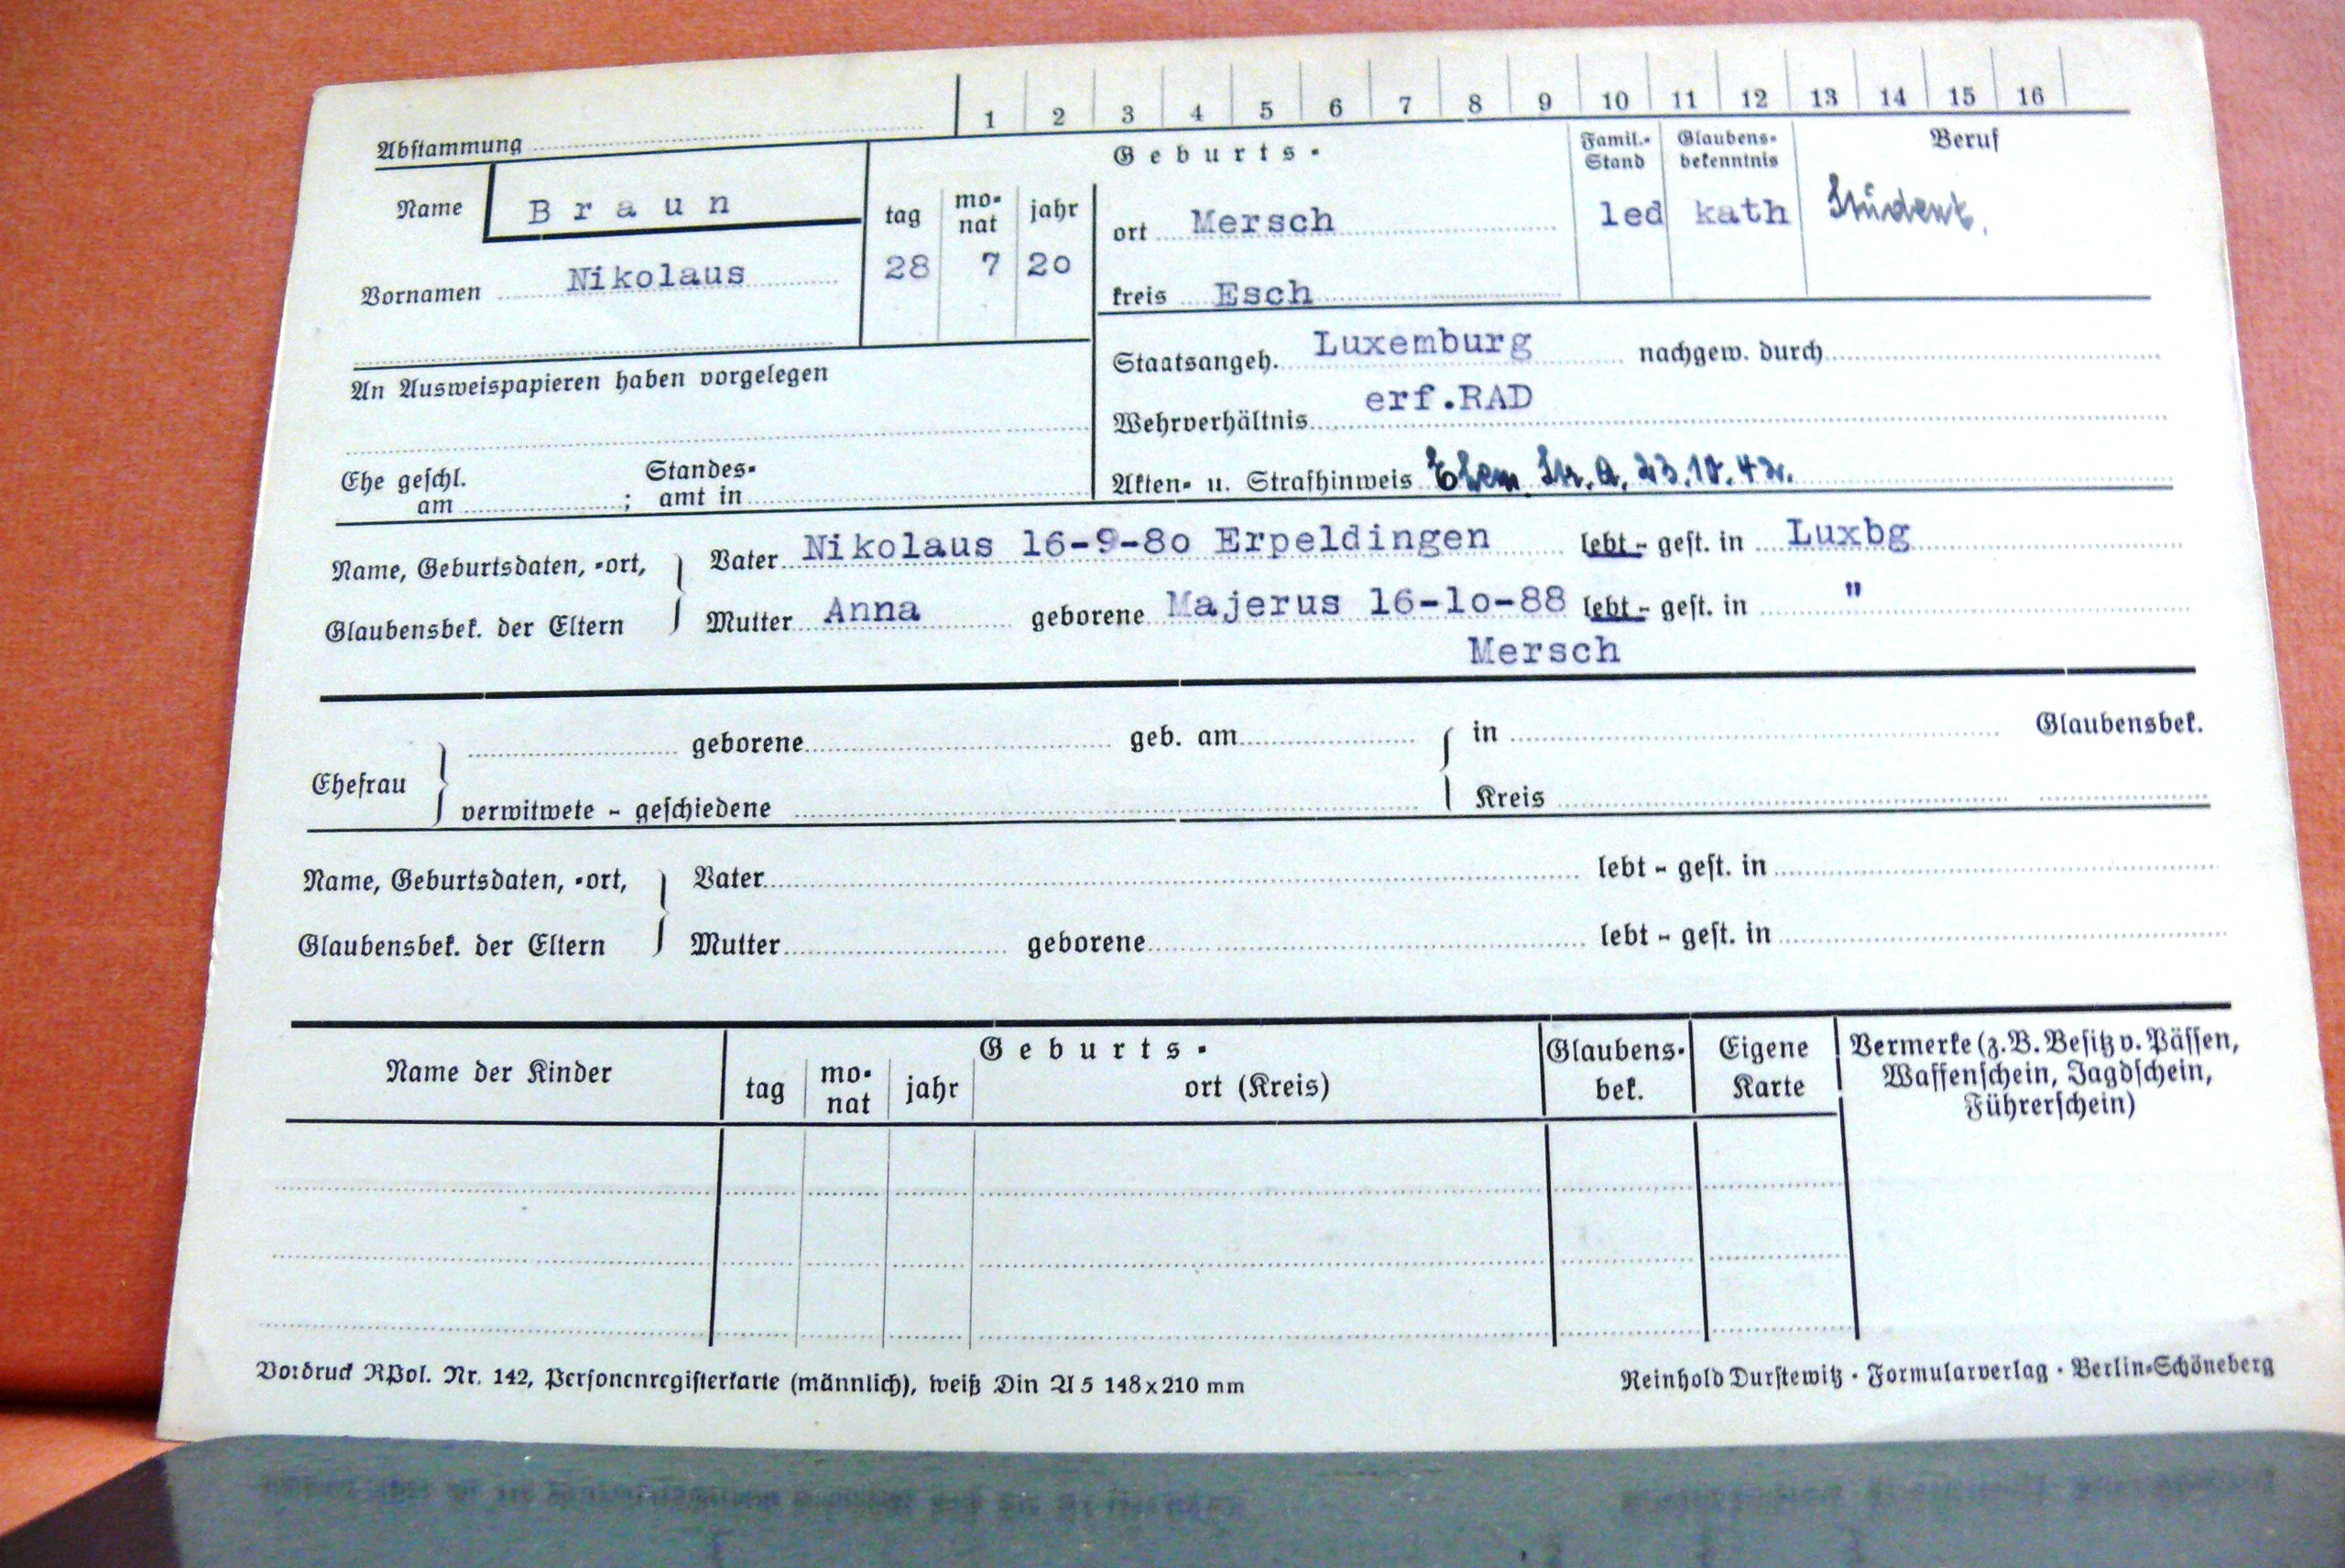 1 2 3 4 5 6 7 8 9 10 11 12 13 14 15 16
Abstammung
Geburts-
Famil.- Stand
Glaubens- bekenntnis
Beruf
Name Braun
tag mo- nat jahr
ort Mersch
led kath Student.
Vornamen Nikolaus
28 7 20
kreis Esch
Staatsangeh. Luxemburg nachgew. durch
An Ausweispapieren haben vorgelegen
Wehrverhältnis erf.RAD
Ehe geschl. am ; Standes- amt in
Akten- u. Strafhinweis Ehem. Str. A. 23.10.42.
Name, Geburtsdaten, -ort,
Vater Nikolaus 16-9-80 Erpeldingen lebt - gest. in Luxbg
Glaubensbek. der Eltern
Mutter Anna geborene Majerus 16-10-88 lebt - gest. in "
Mersch
geborene geb. am in Glaubensbek.
Ehefrau
verwitwete - geschiedene Kreis
Name, Geburtsdaten, -ort,
Vater lebt - gest. in
Glaubensbek. der Eltern
Mutter geborene lebt - gest. in
Name der Kinder
Geburts-
tag mo- nat jahr ort (Kreis)
Glaubens- bek.
Eigene Karte
Vermerke (z.B. Besitz v. Pässen,
Waffenschein, Jagdschein,
Führerschein)
Vordruck RPol. Nr. 142, Personenregisterkarte (männlich), weiß Din A 5 148x210 mm
Reinhold Durstewitz · Formularverlag · Berlin-Schöneberg